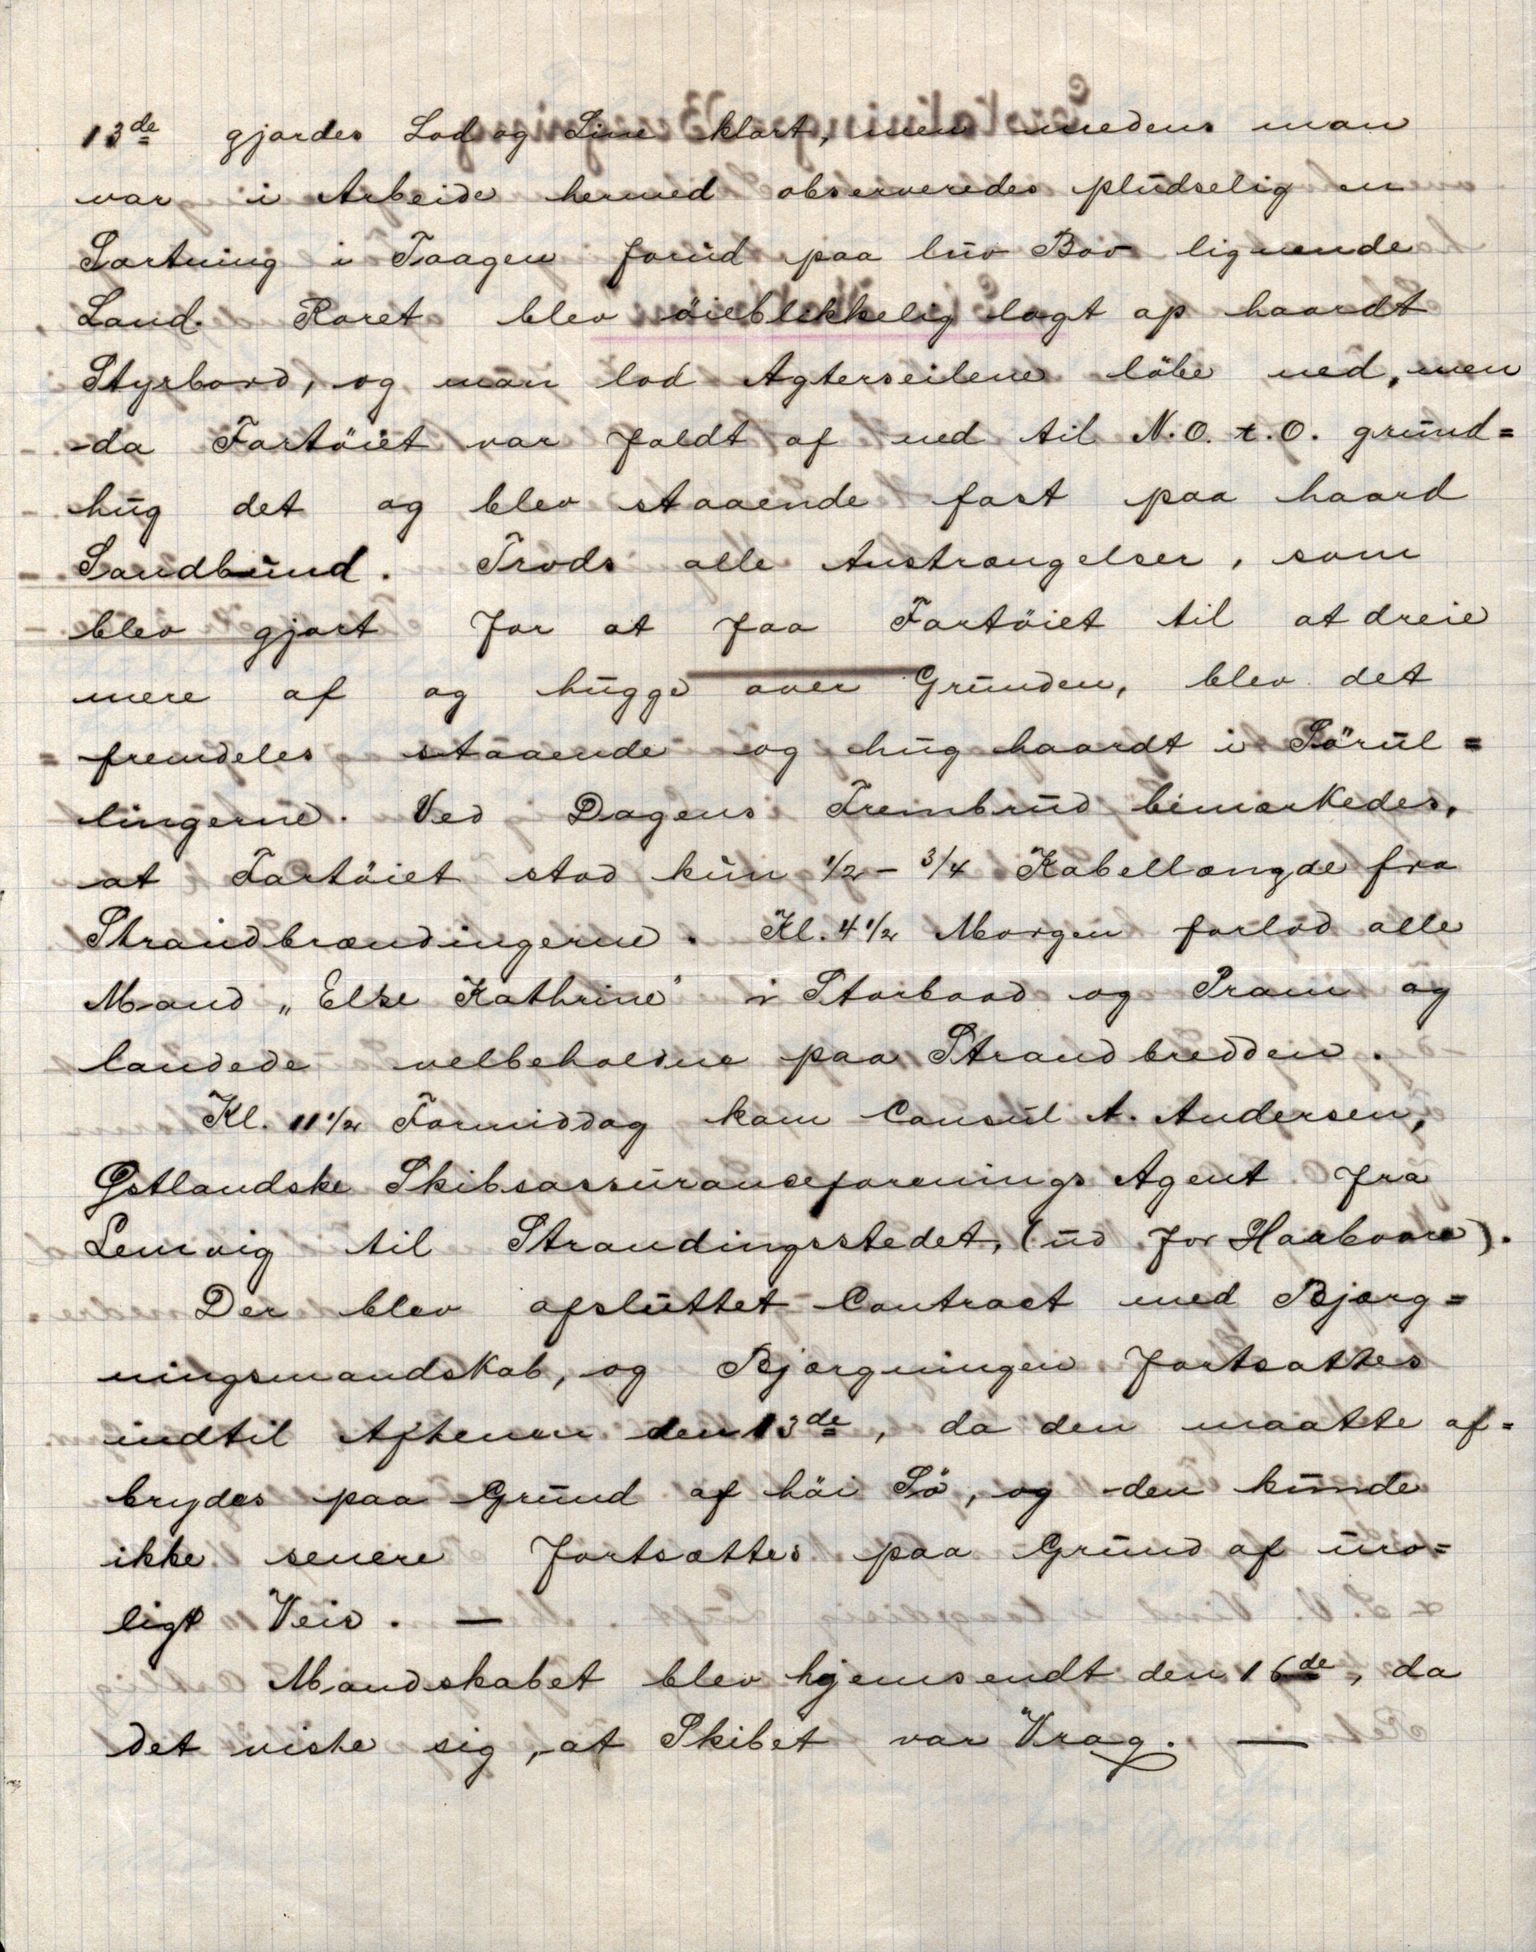 13de gjordes Lod og Line klart, men medens man
var i Arbeide hermed observeredes plüdselig en
Sortning i Taagen forüd paa lüv Bov lignende
Land. Roret blev öieblikkelig lagt op haardt
Styrbord, og man lod Agterseilene löbe ned, men
da Fartöiet var faldt af ned til N.O. t. O. gründ=
hüg det og blev staaende fast paa haard
Sandbünd. Trods alle Anstrængelser, som
blev gjort for at faa Fartöiet til at dreie
mere af og hügge over Gründen, blev det
fremdeles staaende og hüg haardt i Sörül=
lingerne. Ved Dagens Frembrüd bemærkedes,
at Fartöiet stod kün 1/2 - 3/4 Kabellængde fra
Strandbrændingerne. Kl. 4 1/2 Morgen forlod alle
Mand „Else Kathrine" i Storbaad og Pram og
landede velbeholdne paa Strandbredden.
Kl. 11 1/2 Formiddag kom Consül A. Andersen,
Østlandske Skibsassüranceforenings Agent fra
Lemvig til Strandingsstedet, (üd for Harboøre).
Der blev afslüttet Contract med Bjærg=
ningsmandskab, og Bjærgningen fortsattes
indtil Aftenen den 13de, da den maatte af=
brydes paa Gründ af höi Sö, og den künde
ikke senere fortsættes paa Gründ af üro=
ligt Veir. —
Mandskabet blev hjemsendt den 16de, da
det viste sig, at Skibet var Vrag. —